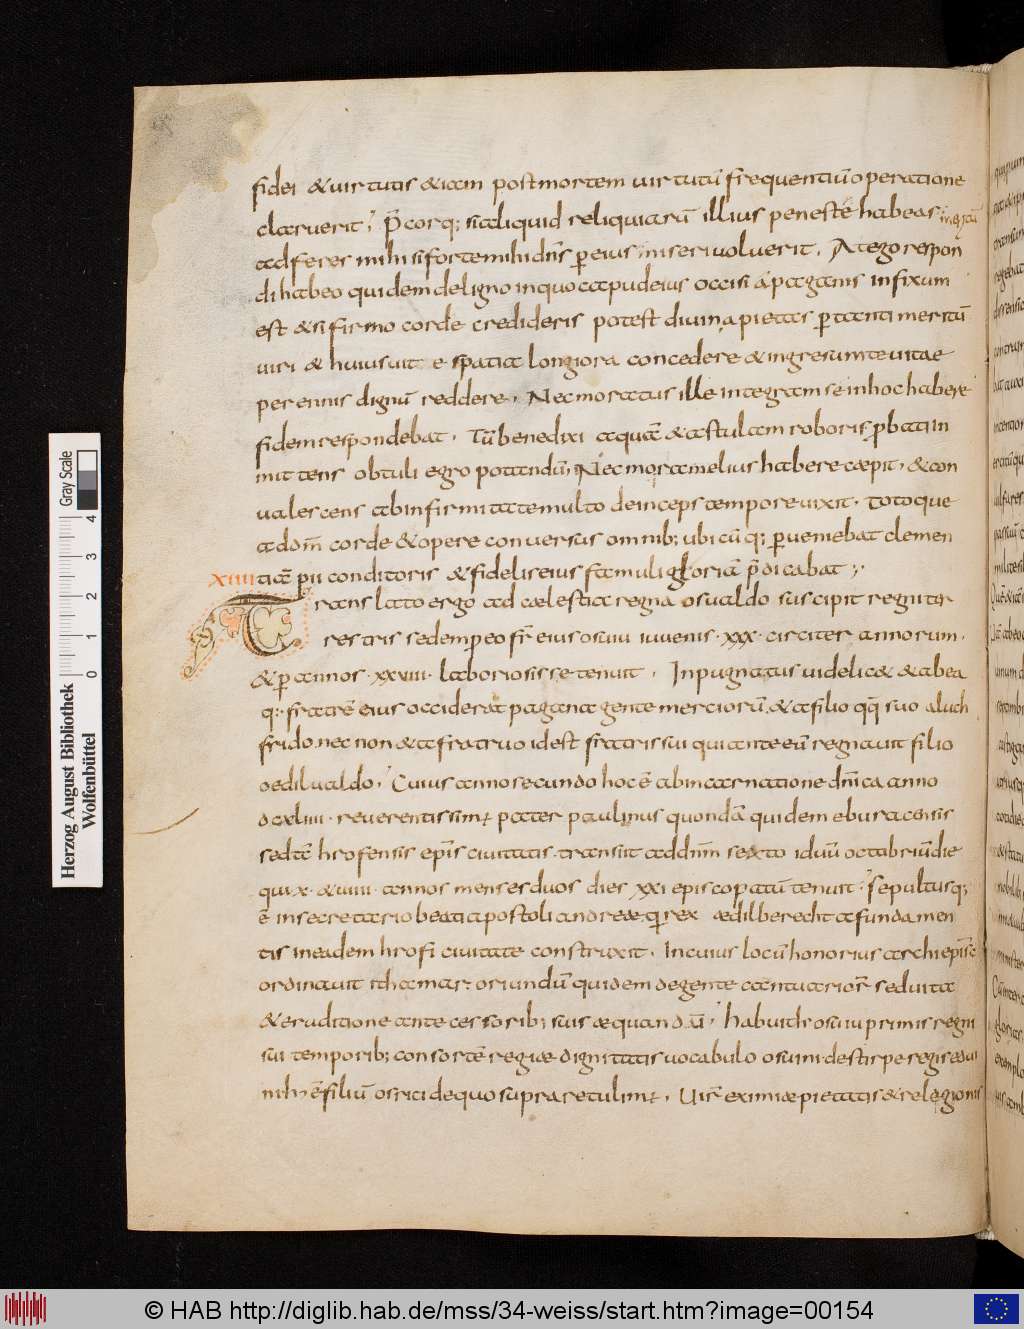 fidei & uirtutis & iam post mortem uirtutũ frequentiũ operatione
claruerit; P̃cor q; si aliquid reliquiarũ illius penes te habeas
adferes mihi si forte mihi dñs p eius misereri uoluerit. At ego respon
di habeo quidem de ligno in quo caput eius occisi a paganis infixum
est & si firmo corde credideris potest diuina pietas p tanti meritũ
uiri & huius uitę spatia longiora concedere & ingressum te uitae
perennis dignũ reddere. Nec moratus ille integram se in hoc habere
fidem respondebat. Tũ benedixi aquã & astulam roboris p̃fati in
mittens obtuli egro potandũ, Nec mora melius habere cæpit, & con
ualescens ab infirmitate multo deinceps tempore uixit. Totoque
ad dñm corde & opere conuersus omnib; ubicũq; pueniebat clemen
XIIII tiã pii conditoris & fidelis eius famuli gloriã p̃dicabat;
Translato ergo ad cælestia regna osualdo suscipit regni ter
restris sedem p eo fr̃ eius osuiu iuuenis .xxx. circiter annorum.
& p annos .xxviii. laboriosisse tenuit. Inpugnatus uidelic& & ab ea
q; fratrẽ eius occiderat pagana gente merciorũ, & a filio qq̃ suo aluch
frido. nec non & a fratruo id est fratris sui qui ante eũ regnauit filio
oediluualdo; Cuius anno secundo hoc ẽ ab incarnatione dñica anno
dcxliiii. reuerentissim; pater paulinus quondã quidem eburacensis
sed tc̃ hrofensis ep̃s ciuitatis. transiit ad dñm sexto iduũ octabriũ die
qui .x. & uiiii. annos menses duos dies xxi episcopatũ tenuit. Sepultusq;
ẽ in secretario beati apostoli andreae q rex ædilberecht a fundamen
tis in eadem hrofi ciuitate construxit. In cuius locũ honorius archiep̃isc
ordinauit ithamar. oriundũ quidem de gente cantuarior̃ sed uita
& eruditione antecessorib; suis æquandũ; Habuit osuiu primis regni
sui temporib; consortẽ regiae dignitatis uocabulo osuini de stirpe regis edui
ni h ẽ filiũ osrici de quo supra retulim;. Uir̃ eximiæ pietatis & relegionis
Herzog August Bibliothek
Wolfenbüttel
Gray Scale
0 1 2 3 4
© HAB http://diglib.hab.de/mss/34-weiss/start.htm?image=00154